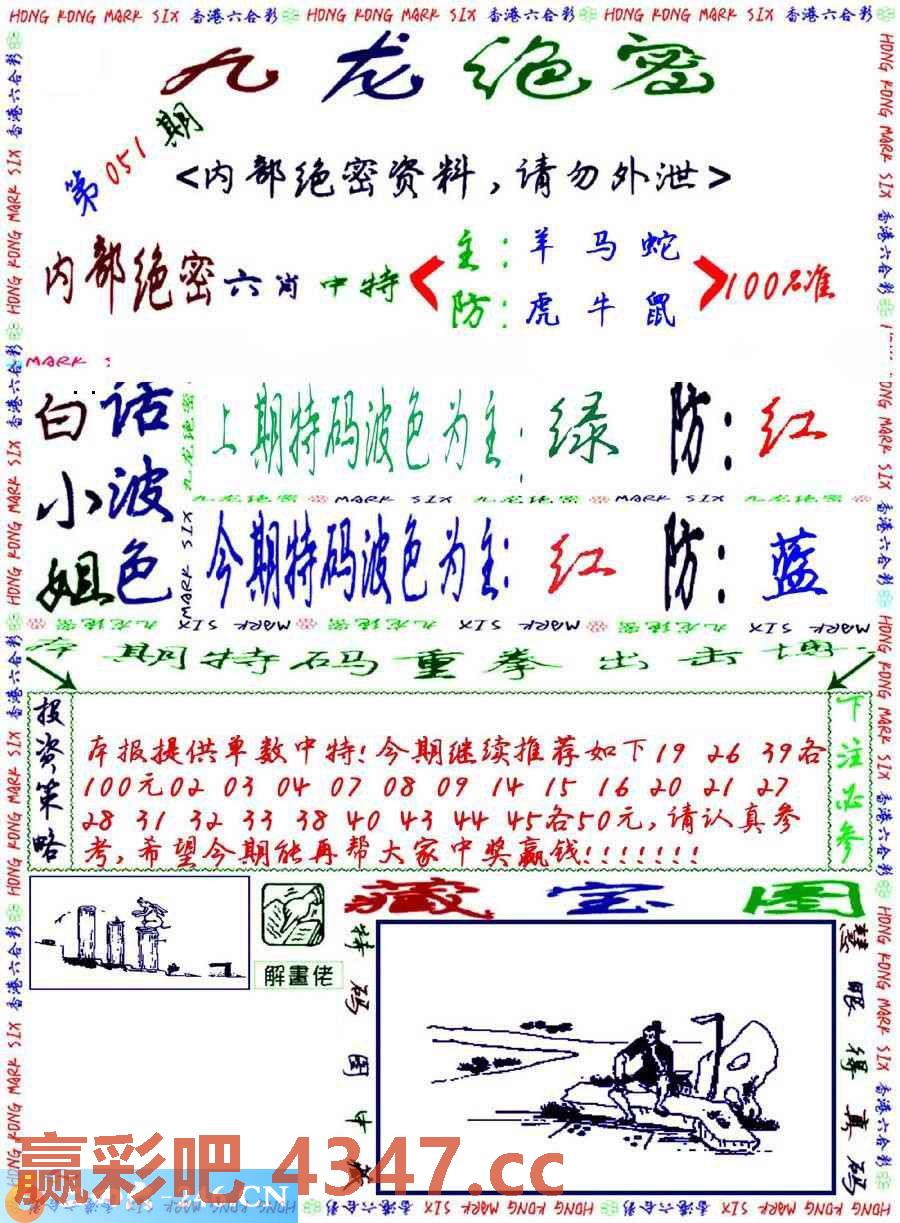 HONG KONG MARK SIX 香港六合彩 HONG KONG MARK SIX 香港六合彩 HONG KONG MARK SIX 香港六合彩
九龙绝密
第051期
<内部绝密资料,请勿外泄>
内部绝密六肖中特
主:羊马蛇
防:虎牛鼠
100%准
MARK :
白小姐
话波色
九龙绝密
MARK SIX
上期特码波色为主:绿 防:红
九龙绝密 MARK SIX 九龙绝密 MARK SIX 九龙绝密
今期特码波色为主:红 防:蓝
九龙绝密 MARK SIX 九龙绝密 MARK SIX 九龙绝密 MARK SIX
期特码重拳出击
投资策略
本报提供单数中特!今期继续推荐如下19 26 39各
100元02 03 04 07 08 09 14 15 16 20 21 27
28 31 32 33 38 40 43 44 45各50元,请认真参
考,希望今期能再帮大家中奖赢钱!!!!!!!
下注必参
解畫佬
藏宝图
特码图中
慧眼得真码
赢彩吧 4347.cc
.CN